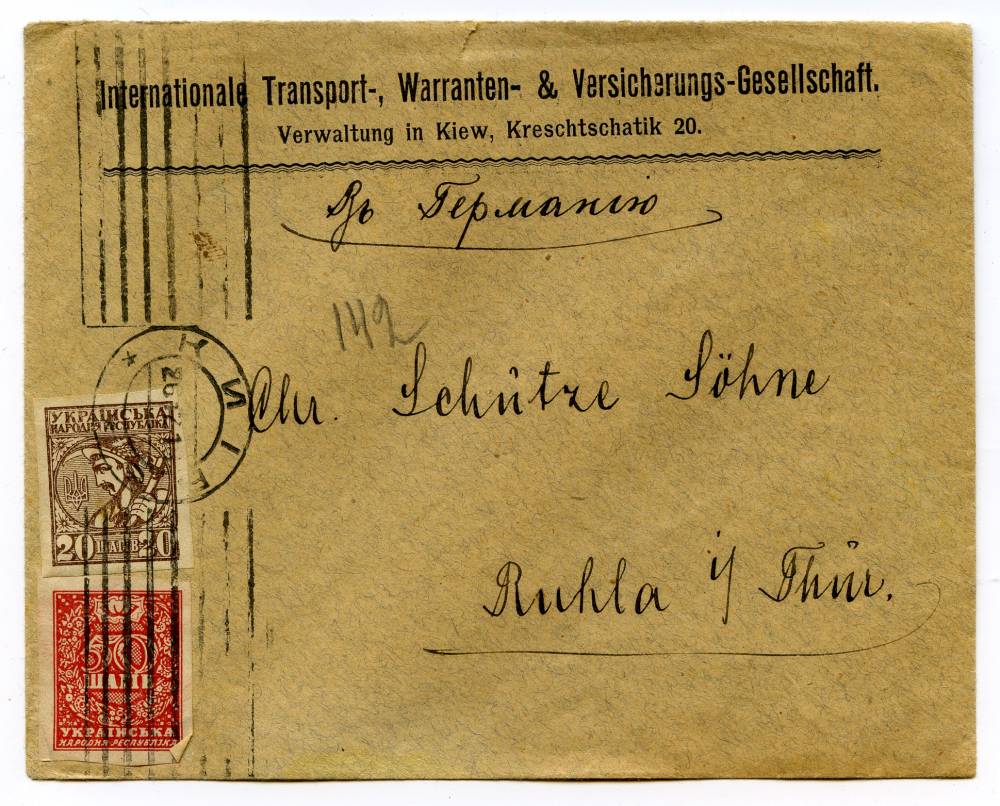 Internationale Transport-, Warranten- & Versicherungs-Gesellschaft.
Verwaltung in Kiew, Kreschtschatik 20.
Въ Германію
142
Chr. Schütze Söhne
Ruhla i/ Thür.
КИЇВ
УКРАЇНСЬКА
НАРОДНЯ РЕСПУБЛІКА
20 ШАГІВ 20
50
ШАГІВ
УКРАЇНСЬКА
НАРОДНЯ РЕСПУБЛІКА